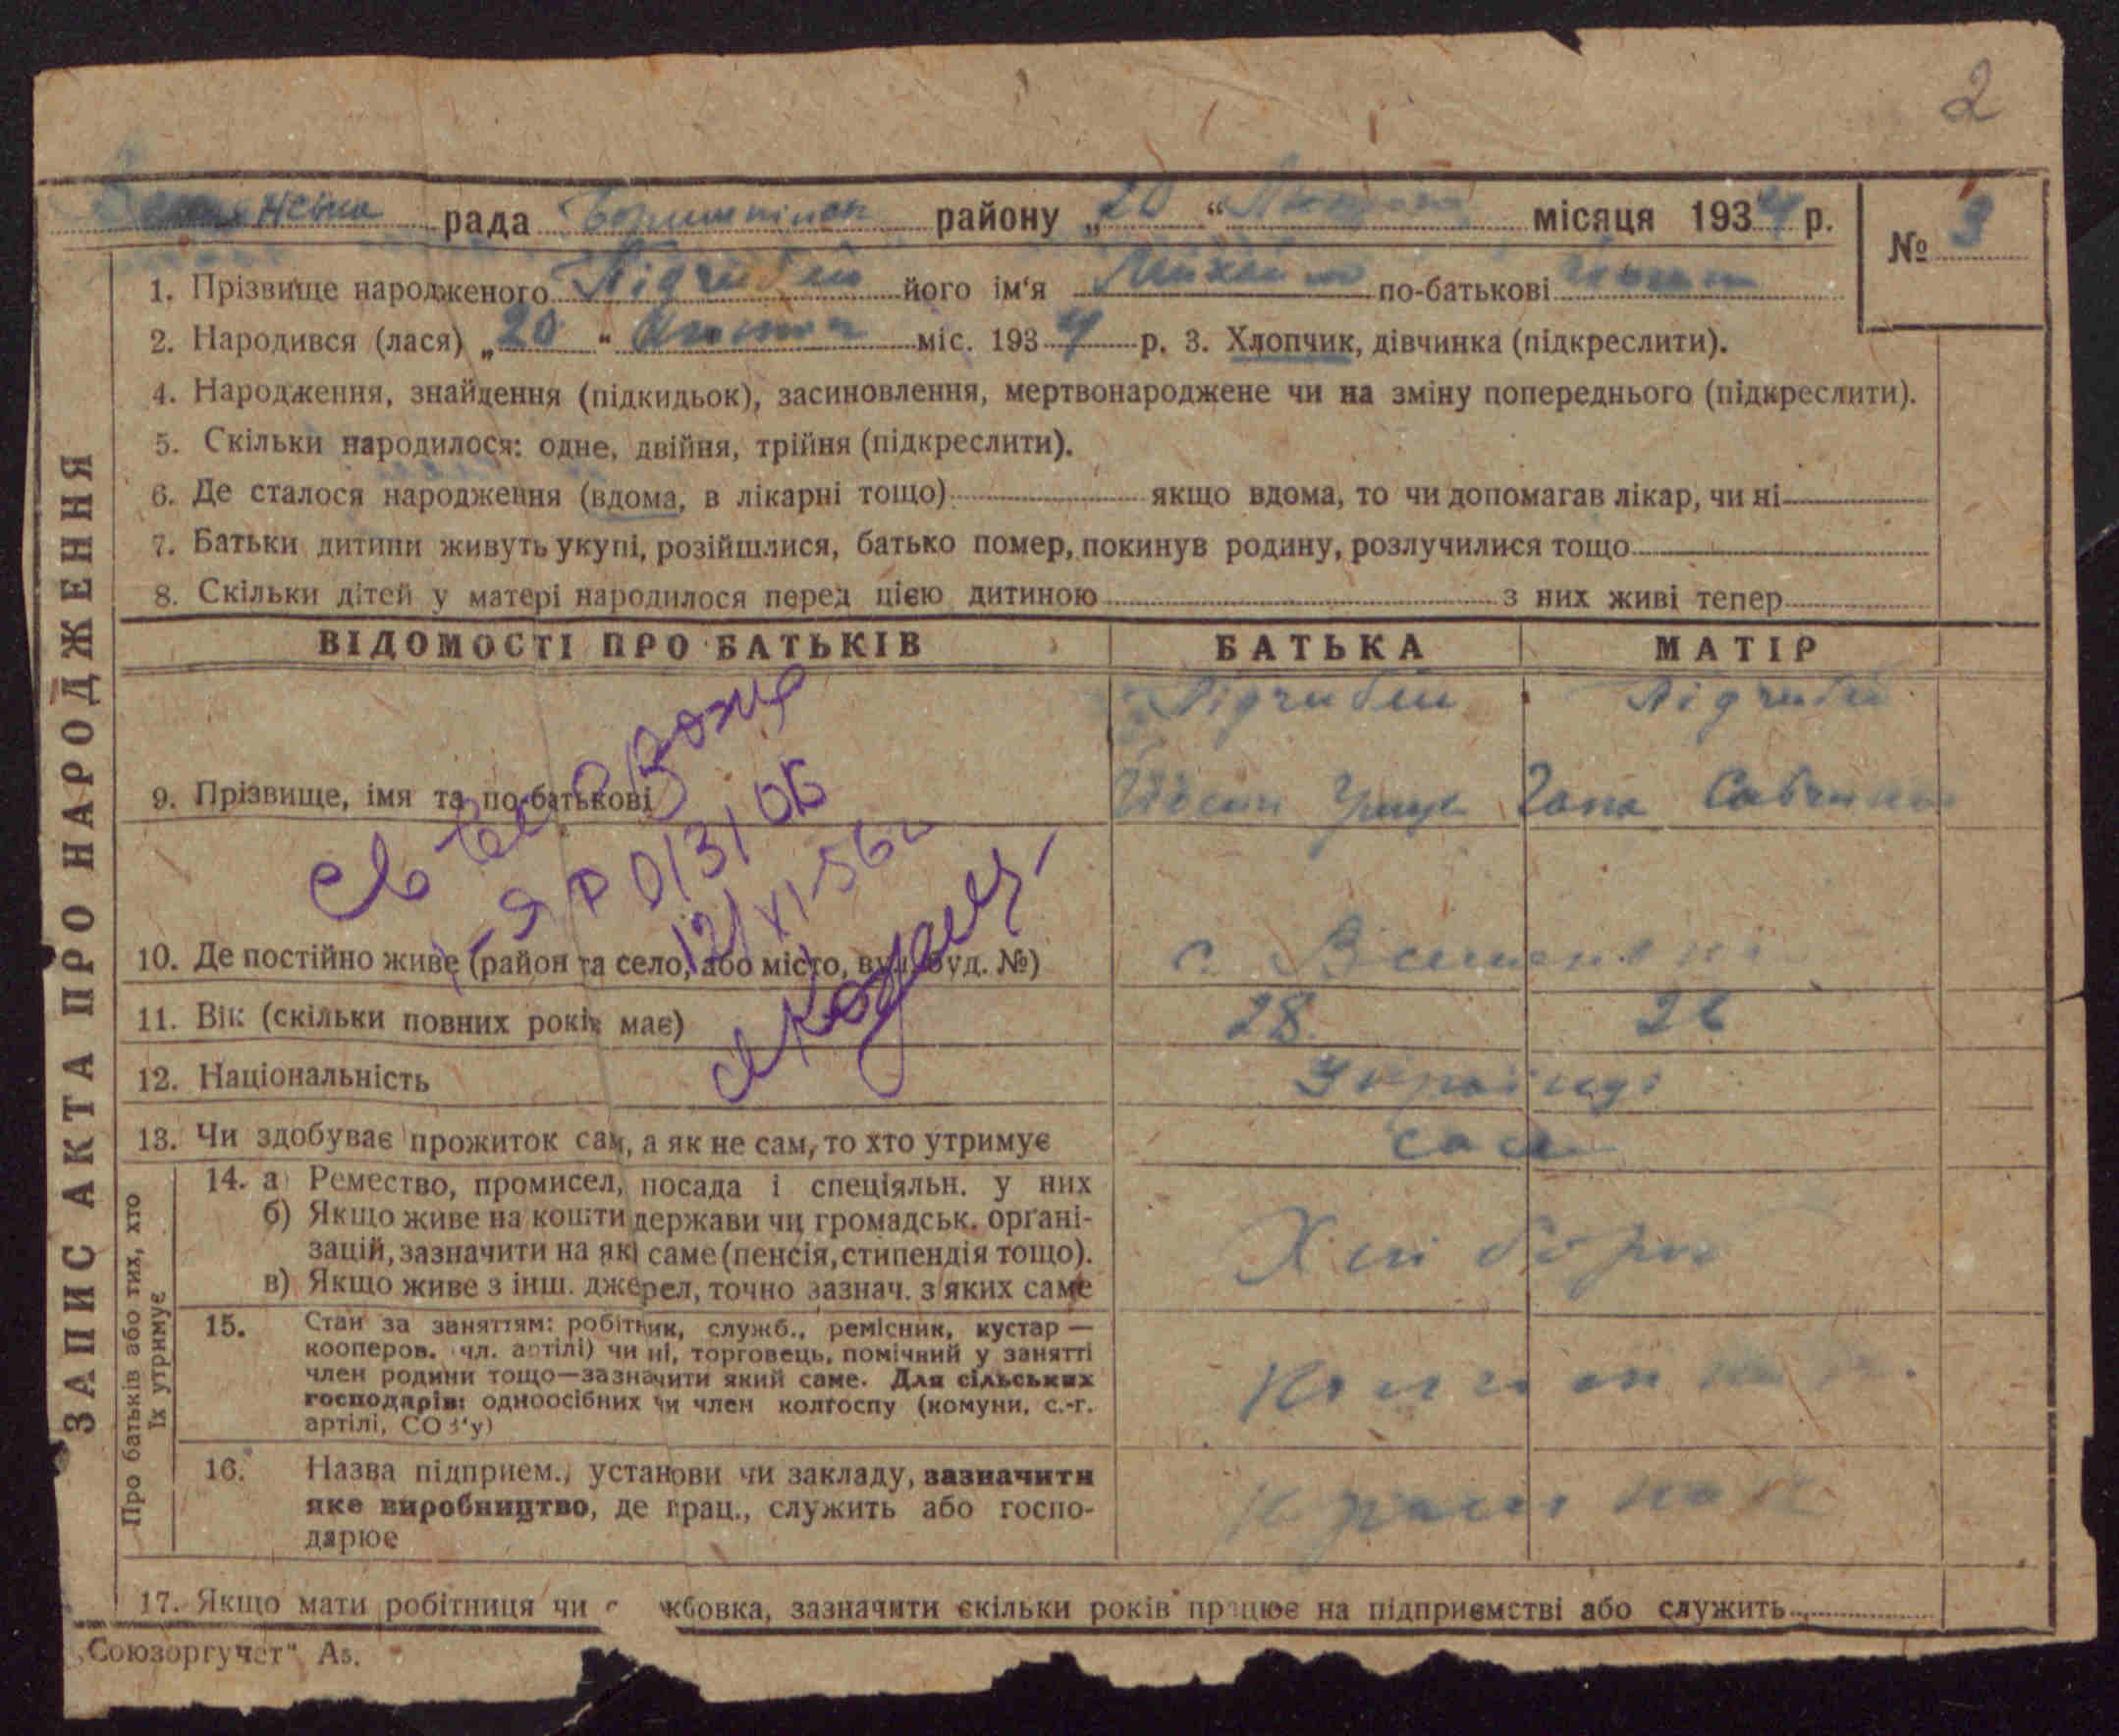 2
рада району „ 20 “ місяця 1934 р.
№ 3
1. Прізвище народженого Підгибій його ім‘я Михайло по-батькові
2. Народився (лася) „ 20 “ лютого міс. 1934 р. 3. Хлопчик, дівчинка (підкреслити).
4. Народження, знайдення (підкидьок), засиновлення, мертвонароджене чи на зміну попереднього (підкреслити).
5. Скільки народилося: одне, двійня, трійня (підкреслити).
6. Де сталося народження (вдома, в лікарні тощо) якщо вдома, то чи допомагав лікар, чи ні
7. Батьки дитини живуть укупі, розійшлися, батько помер, покинув родину, розлучилися тощо
8. Скільки дітей у матері народилося перед цією дитиною з них живі тепер
ЗАПИС АКТА ПРО НАРОДЖЕННЯ
ВІДОМОСТІ ПРО БАТЬКІВ БАТЬКА МАТІР
Підгибій Підгибій
9. Прізвище, імя та по-батькові
10. Де постійно живе (район та село, або місто, вул. буд. №) с.
11. Вік (скільки повних років має) 28. 26
12. Національність Українці
13. Чи здобуває прожиток сам, а як не сам, то хто утримує сам
Про батьків або тих, хто
їх утримує
14. а) Ремество, промисел, посада і спеціяльн. у них
б) Якщо живе на кошти держави чи громадськ. орґані-
зацій, зазначити на які саме (пенсія, стипендія тощо).
в) Якщо живе з інш. джерел, точно зазнач. з яких саме
Хлібороб
15. Стан за заняттям: робітник, служб., ремісник, кустар —
кооперов. чл. артілі) чи ні, торговець, помічний у занятті
член родини тощо—зазначити який саме. Для сільських
господарів: одноосібних чи член колгоспу (комуни, с.-г.
артілі, СОЗ‘у)
16. Назва підприєм., установи чи закладу, зазначити
яке виробництво, де прац., служить або госпо-
дарює
17. Якщо мати робітниця чи жбовка, зазначити скільки років працює на підприємстві або служить
„Союзоргучет“ А5.